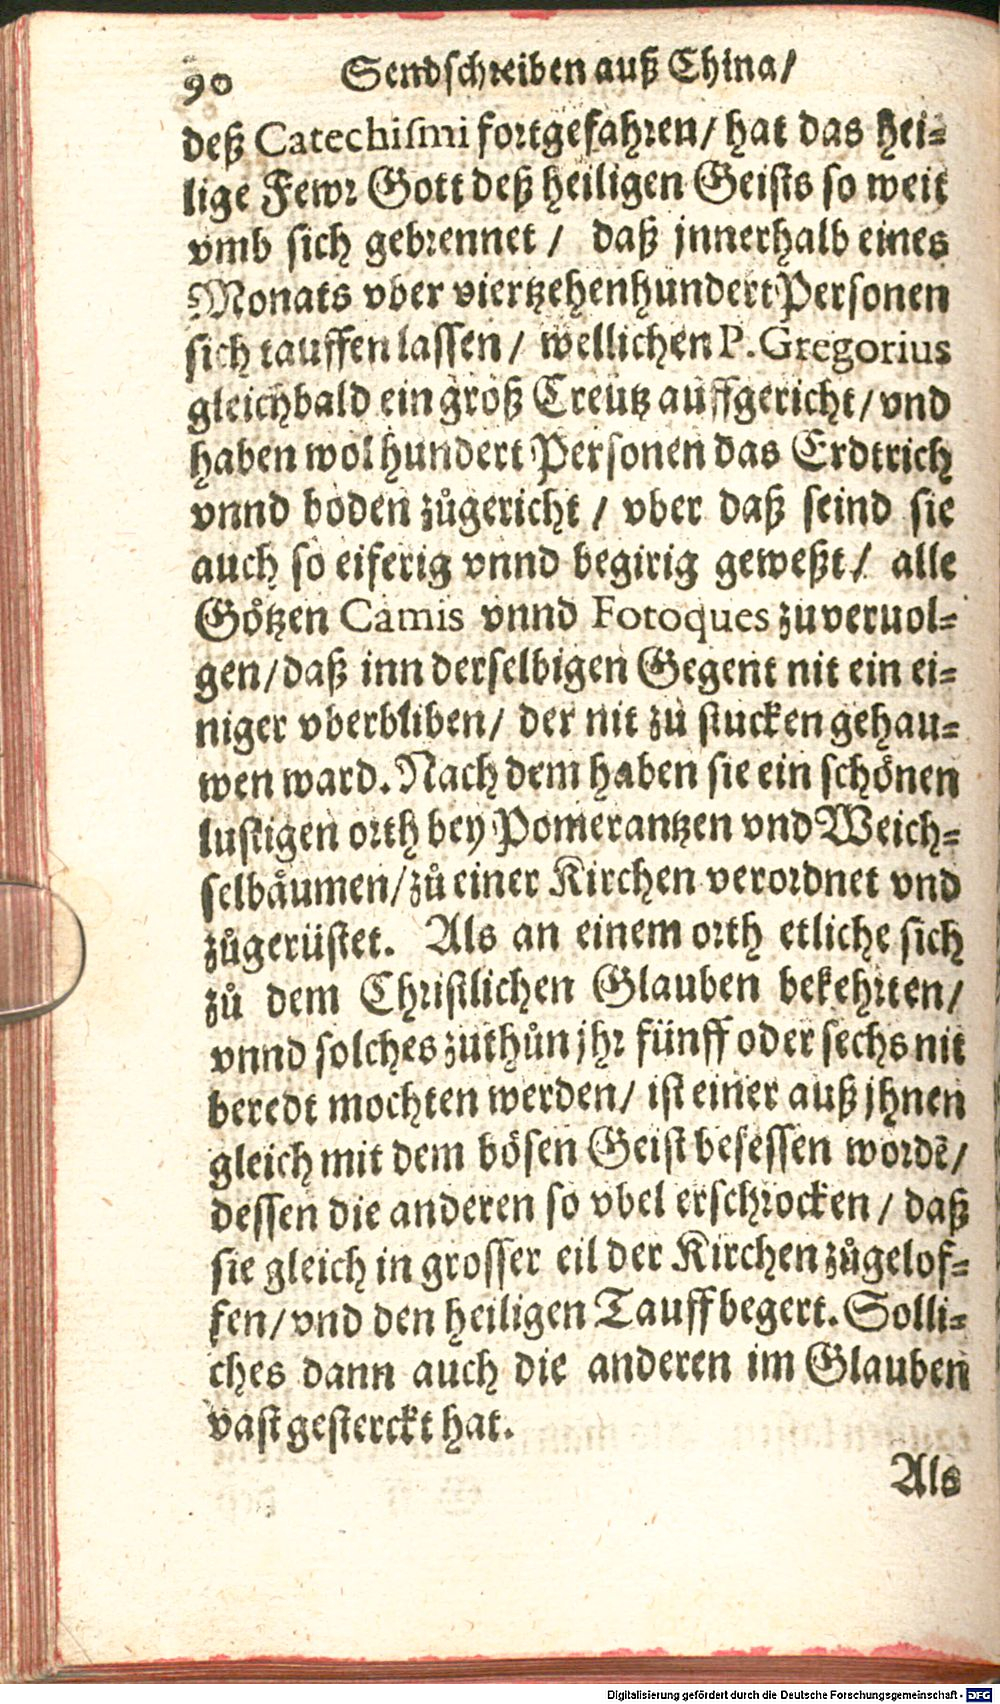 90 Sendschreiben auß China/
deß Catechismi fortgefahren/ hat das hei-
lige Fewr Gott deß heiligen Geists so weit
vmb sich gebrennet / daß jnnerhalb eines
Monats vber viertzehenhundert Personen
sich tauffen lassen / wellichen P. Gregorius
gleichbald ein groß Creutz auffgericht/ vnd
haben wol hundert Personen das Erdtrich
vnnd boden zůgericht / vber daß seind sie
auch so eiferig vnnd begirig geweßt / alle
Götzen Camis vnnd Fotoques zuveruol-
gen/ daß inn derselbigen Gegent nit ein ei-
niger vberbliben/ der nit zu stucken gehau-
wen ward. Nach dem haben sie ein schönen
lustigen orth bey Pomerantzen vnd Weich-
selbäumen/ zů einer Kirchen verordnet vnd
zůgerüstet. Als an einem orth etliche sich
zů dem Christlichen Glauben bekehrten/
vnnd solches zuthůn jhr fünff oder sechs nit
beredt mochten werden/ ist einer auß jhnen
gleich mit dem bösen Geist besessen wordē/
dessen die anderen so vbel erschrocken / daß
sie gleich in grosser eil der Kirchen zůgelof-
fen/ vnd den heiligen Tauff begert. Solli-
ches dann auch die anderen im Glauben
vast gesterckt hat.
Als
Digitalisierung gefördert durch die Deutsche Forschungsgemeinschaft - DFG